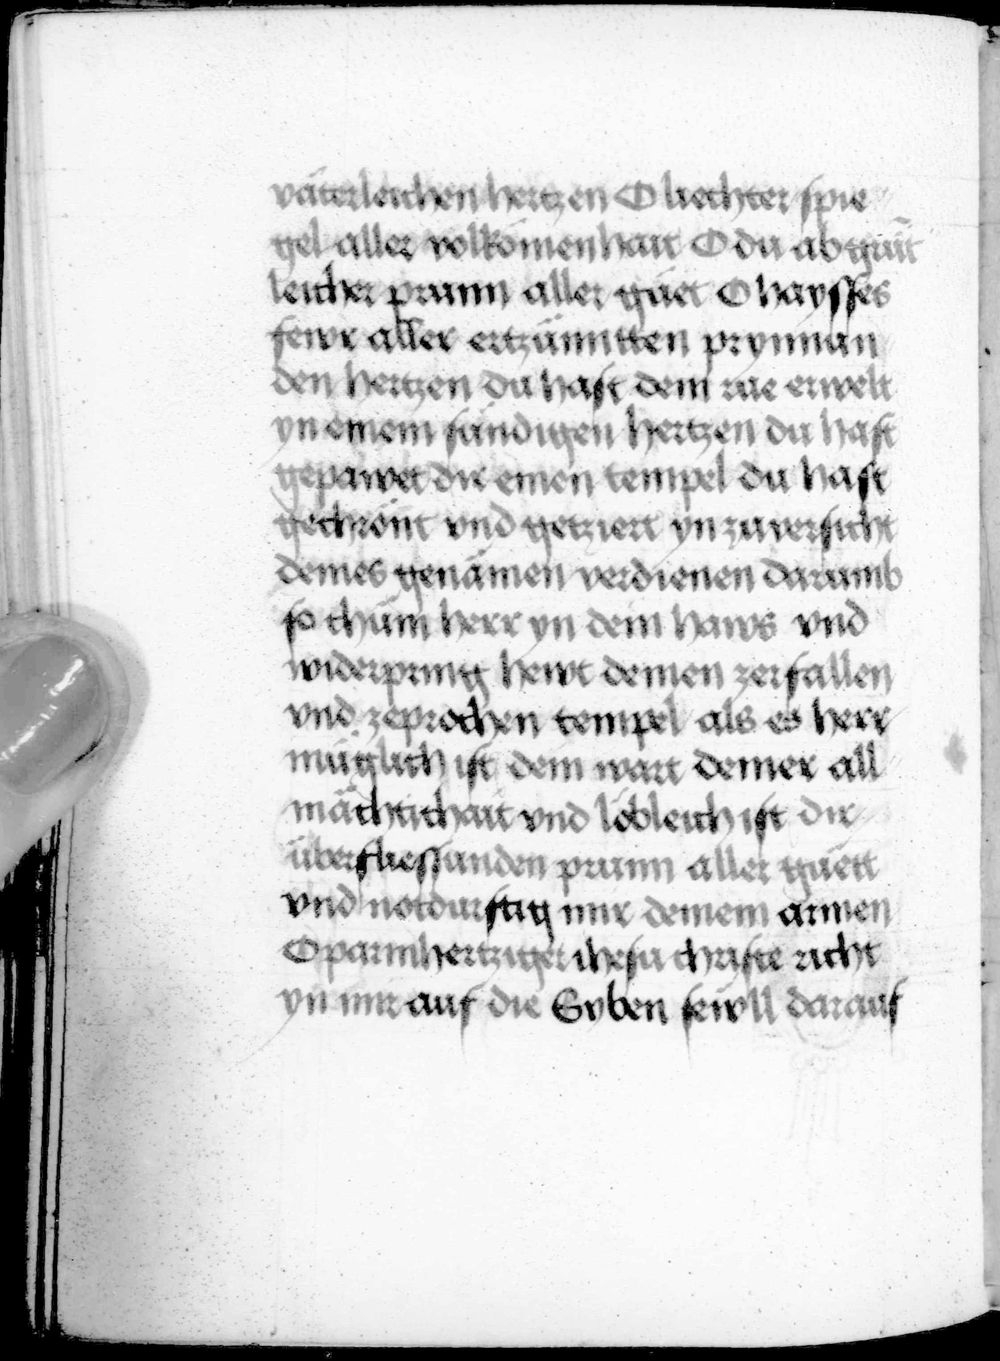 väterleichen hertzen O liechter spie
gel aller volkomenhait O du abgrüt
leicher prunn aller güet O haysses
fewr aller ertzünntten prynnan
den hertzen du hast dein rue erwelt
yn einem sündigen hertzen du hast
gepawet dir einen tempel du hast
gechrönt vnd getziert yn zuuersicht
deines genämen verdienen darumb
so chüm herr yn dein haws vnd
widerpring hewt deinen zerfallen
vnd zeprochen tempel als es herr
müglich ist dem wart deiner all
mächtichait vnd löbleich ist dir
überfliessunden prunn aller güett
vnd notdurftig mir deinem armen
O parmhertziger ihesu christe richt
yn mir auf die Syben sewll darauf